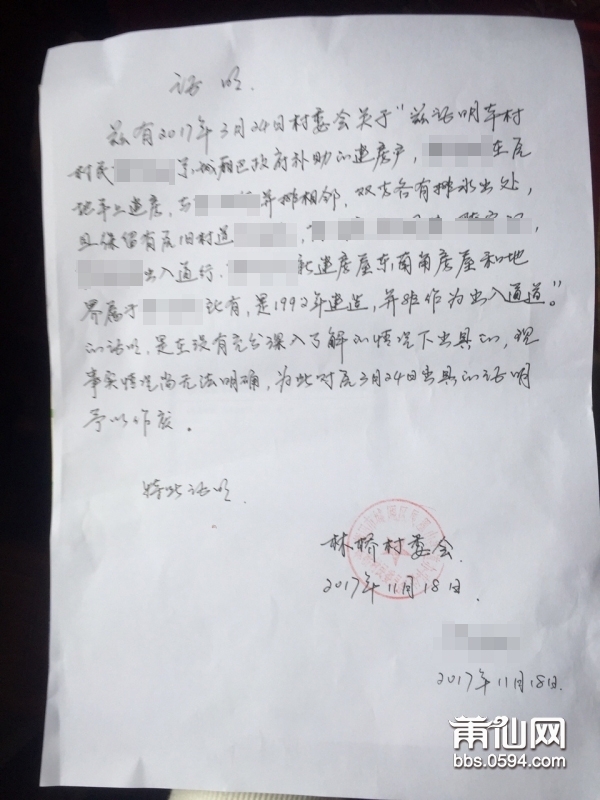 证明.
兹有2017年3月24日村委会关于“兹证明本村
村民 享城厢区政府补助的建房户, 在原
地卒上建房, 与 并排相邻, 双方各有排水出处,
且保留有原旧村道
出入通行. 新建房屋东南角房屋和地
界属于 所有, 是1992年建造, 并非作为出入通道。”
的证明, 是在没有充分深入了解的情况下出具的, 现
事实情况尚无法明确, 为此对原3月24日出具的证明
予以作废。
特此证明.
林桥村委会.
2017年11月18日.
2017年11月18日.
莆仙网
bbs.0594.com